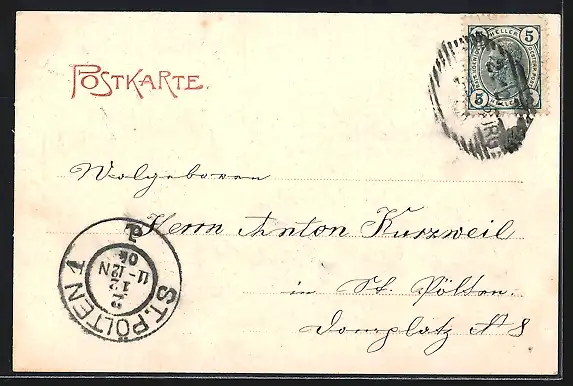 POSTKARTE.
5 HELLER 5
5 HELLER 5
Wolgeboren
Herrn Anton Kurzweil
in St. Pölten.
Domplatz № 8
ST. PÖLTEN 1
11-12N